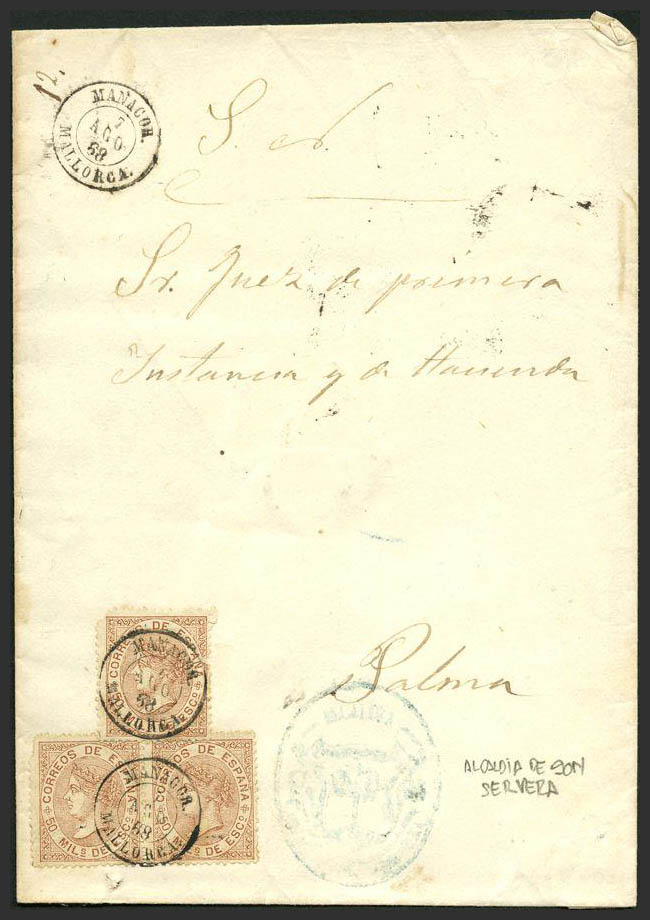 12.
MANACOR.
7
AGO.
68
MALLORCA.
S. N.
Sr. Juez de primera
Instancia y de Hacienda
Palma
CORREOS DE ESPAÑA
MANACOR.
AGO
68
MALLORCA.
CORREOS DE ESPAÑA
CORREOS DE ESPAÑA
50 MILS DE ESCO
MANACOR.
68
MALLORCA
ALCALDIA DE SON
SERVERA